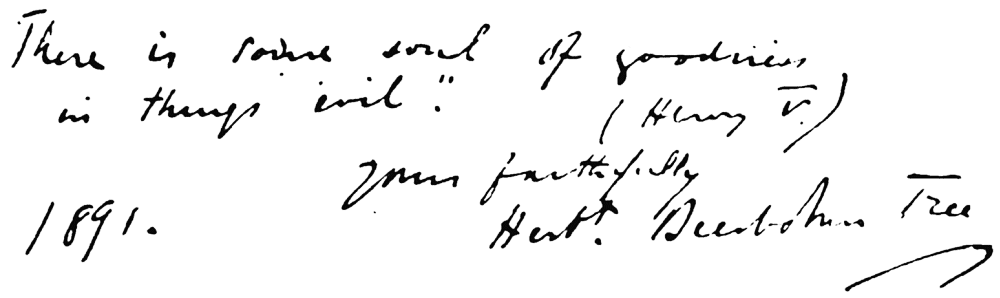 There is some soul of goodness
in things evil".
(Henry V.)
Yours faithfully
1891.
Herbt. Beerbohm Tree